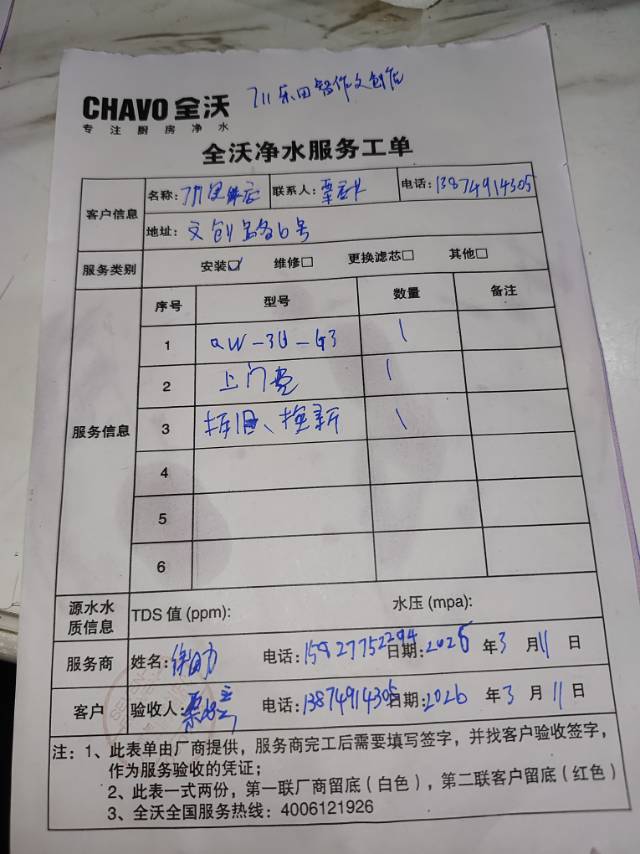 711乐田智作文创店
CHAVO 全沃
专注厨房净水
全沃净水服务工单
客户信息
名称: 711 联系人: 电话: 13874914305
地址: 文创路6号
服务类别 安装☑ 维修□ 更换滤芯□ 其他□
服务信息
序号 型号 数量 备注
1 QW-3U-G3 1
2 上门费 1
3 拆旧、换新 1
4
5
6
源水水质信息 TDS 值 (ppm): 水压 (mpa):
服务商 姓名: 电话: 15927752294 日期: 2026 年 3 月 11 日
客户 验收人: 电话: 13874914305 日期: 2026 年 3 月 11 日
注: 1、此表单由厂商提供，服务商完工后需要填写签字，并找客户验收签字，
作为服务验收的凭证；
2、此表一式两份，第一联厂商留底（白色），第二联客户留底（红色）
3、全沃全国服务热线: 4006121926